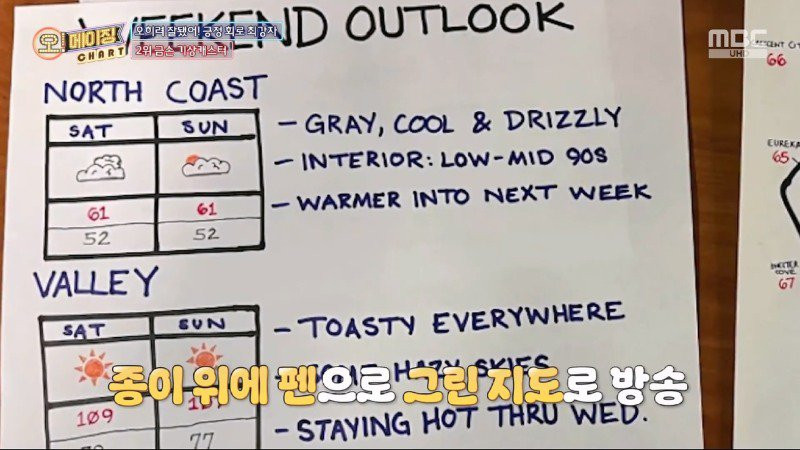 오! 메이징
CHART
오히려 잘됐어! 긍정 회로 최강자
2위 금손 기상캐스터
MBC
UHD
WEEKEND OUTLOOK
NORTH COAST
SAT SUN
61 61
52 52
- GRAY, COOL & DRIZZLY
- INTERIOR: LOW-MID 90S
- WARMER INTO NEXT WEEK
VALLEY
SAT SUN
109
77
- TOASTY EVERYWHERE
HAZY SKIES
- STAYING HOT THRU WED.
66
EUREKA
65
COVE
67
종이 위에 펜으로 그린 지도로 방송